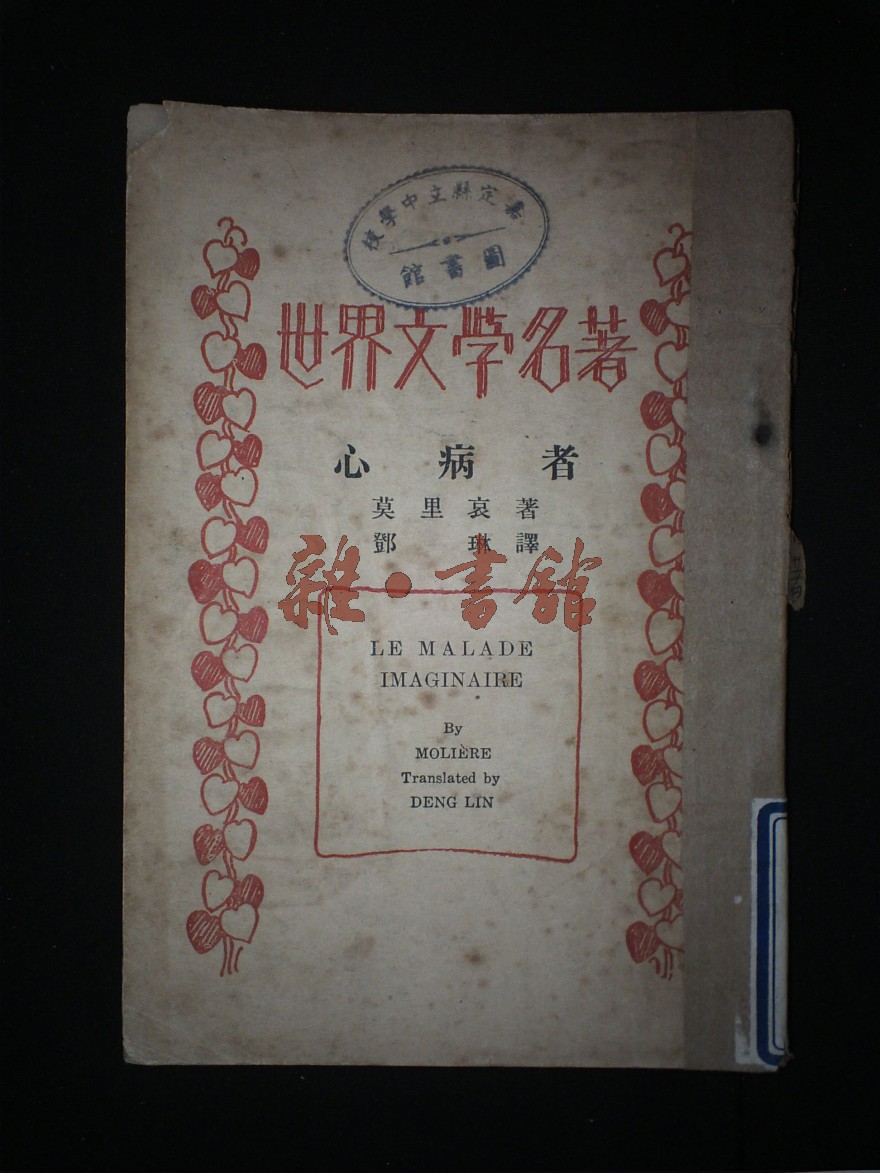 嘉定縣立中學校
圖書館
世界文學名著
心病者
莫里哀著
鄧琳譯
雜·書館
LE MALADE
IMAGINAIRE
By
MOLIÈRE
Translated by
DENG LIN